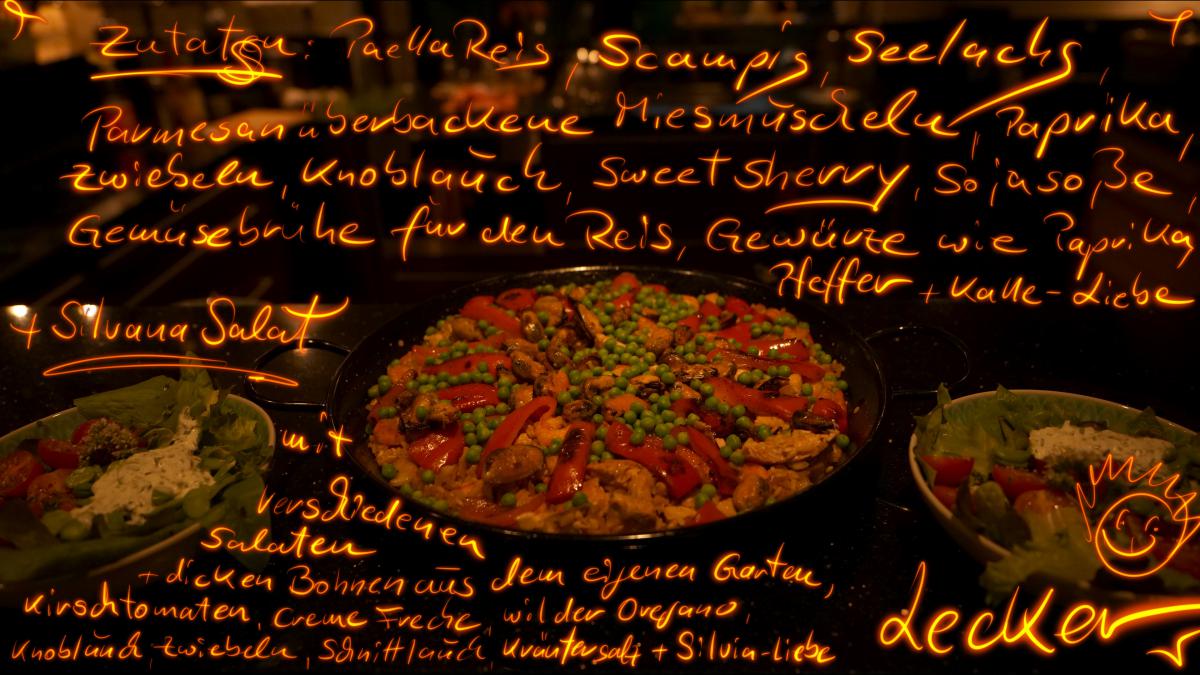 Zutaten: Paella Reis, Scampis, Seelachs,
Parmesan überbackene Miesmuscheln, Paprika,
Zwiebeln, Knoblauch, Sweet Sherry, Sojasoße,
Gemüsebrühe für den Reis, Gewürze wie Paprika
Pfeffer + Kalle-Liebe
+ Silvana Salat
mit
verschiedenen
Salaten
+ dicken Bohnen aus dem eigenen Garten,
Kirschtomaten, Creme Freche, wilder Oregano,
Knoblauch, Zwiebeln, Schnittlauch, Kräutersalz + Silvia-Liebe
Lecker